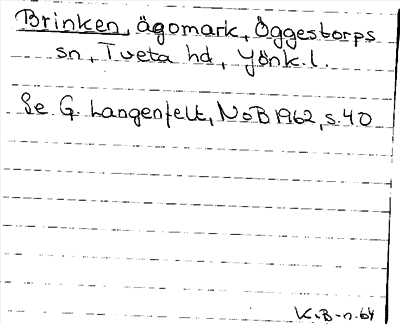 Brinken, ägomark, Öggestorps
sn, Tveta hd, Jönk.l.
Se G. Langenfelt, NoB 1962, s.40
K.B-n.64